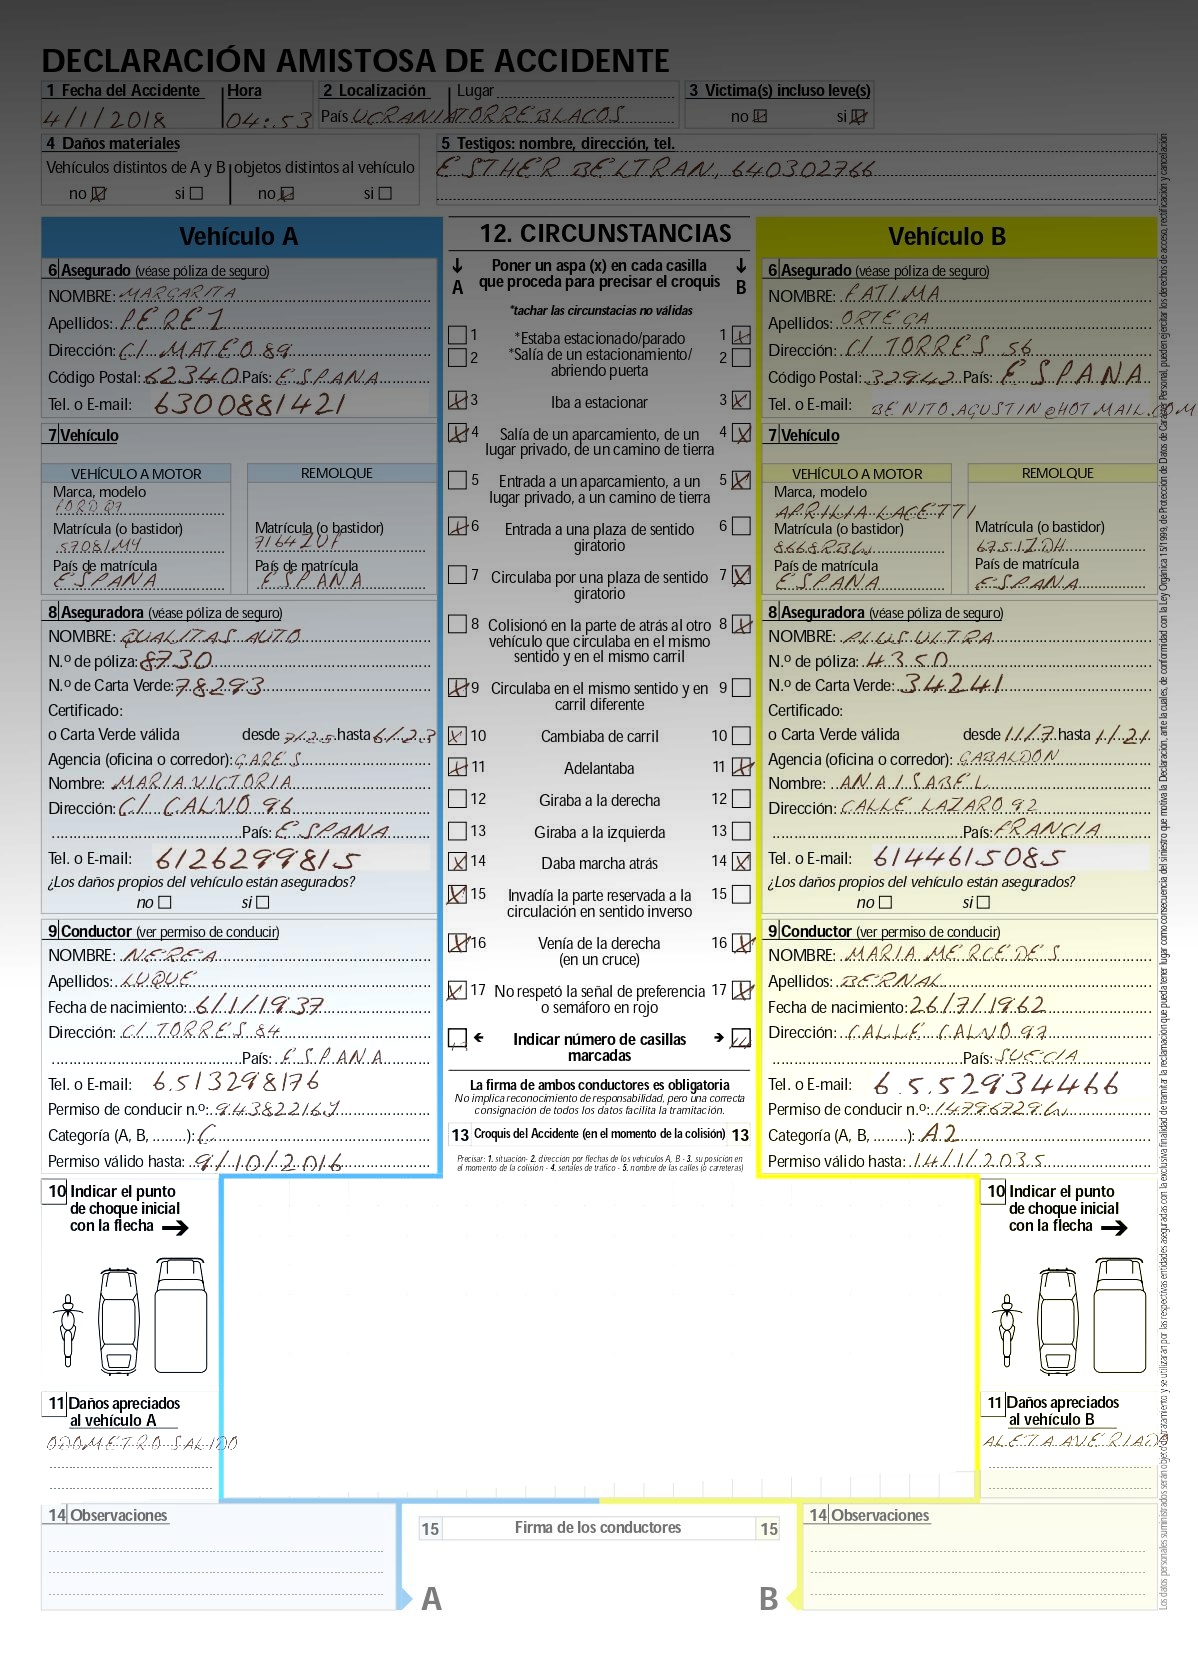 DECLARACIÓN AMISTOSA DE ACCIDENTE
1 Fecha del Accidente Hora 2 Localización Lugar 3 Victima(s) incluso leve(s)
4/1/2018 04:53 País UCRANIA TORREBLACOS no si
4 Daños materiales 5 Testigos: nombre, dirección, tel.
Vehículos distintos de A y B objetos distintos al vehículo ESTHER BELTRAN, 640302766
no si no si
Vehículo A
6 Asegurado (véase póliza de seguro)
NOMBRE: MARGARITA
Apellidos: PEREZ
Dirección: C/ MATEO 89
Código Postal: 62340 País: ESPANA
Tel. o E-mail: 6300881421
7 Vehículo
VEHÍCULO A MOTOR REMOLQUE
Marca, modelo
FORD Q7
Matrícula (o bastidor) Matrícula (o bastidor)
S7081MY 7164ZUF
País de matrícula País de matrícula
ESPANA ESPANA
8 Aseguradora (véase póliza de seguro)
NOMBRE: QUALITAS AUTO
N.º de póliza: 8730
N.º de Carta Verde: 78293
Certificado:
o Carta Verde válida desde 7/25 hasta 6/23
Agencia (oficina o corredor): GARES
Nombre: MARIA VICTORIA
Dirección: C/ CALVO 96
País: ESPANA
Tel. o E-mail: 6126299815
¿Los daños propios del vehículo están asegurados?
no si
9 Conductor (ver permiso de conducir)
NOMBRE: NEREA
Apellidos: LUQUE
Fecha de nacimiento: 6/1/1937
Dirección: C/ TORRES 84
País: ESPANA
Tel. o E-mail: 6.513298176
Permiso de conducir n.º: 94382216J
Categoría (A, B, ........): C
Permiso válido hasta: 9/10/2016
12. CIRCUNSTANCIAS
A Poner un aspa (x) en cada casilla que proceda para precisar el croquis B
*tachar las circunstacias no válidas
1 *Estaba estacionado/parado 1
2 *Salía de un estacionamiento/ 2
abriendo puerta
3 Iba a estacionar 3
4 Salía de un aparcamiento, de un 4
lugar privado, de un camino de tierra
5 Entrada a un aparcamiento, a un 5
lugar privado, a un camino de tierra
6 Entrada a una plaza de sentido 6
giratorio
7 Circulaba por una plaza de sentido 7
giratorio
8 Colisionó en la parte de atrás al otro 8
vehículo que circulaba en el mismo
sentido y en el mismo carril
9 Circulaba en el mismo sentido y en 9
carril diferente
10 Cambiaba de carril 10
11 Adelantaba 11
12 Giraba a la derecha 12
13 Giraba a la izquierda 13
14 Daba marcha atrás 14
15 Invadía la parte reservada a la 15
circulación en sentido inverso
16 Venía de la derecha 16
(en un cruce)
17 No respetó la señal de preferencia 17
o semáforo en rojo
Indicar número de casillas
marcadas
La firma de ambos conductores es obligatoria
No implica reconocimiento de responsabilidad, pero una correcta
consignación de todos los datos facilita la tramitación.
13 Croquis del Accidente (en el momento de la colisión) 13
Precisar: 1. situación- 2. dirección por flechas de los vehículos A, B - 3. su posición en
el momento de la colisión - 4. señales de trafico - 5. nombre de las calles (o carreteras)
Vehículo B
6 Asegurado (véase póliza de seguro)
NOMBRE: FATIMA
Apellidos: ORTEGA
Dirección: C/ TORRES 56
Código Postal: 32942 País: ESPANA
Tel. o E-mail: BENITO.AGUSTIN@HOTMAIL.COM
7 Vehículo
VEHÍCULO A MOTOR REMOLQUE
Marca, modelo
APRILIA LACETTI
Matrícula (o bastidor) Matrícula (o bastidor)
8668RBW 6751ZDH
País de matrícula País de matrícula
ESPANA ESPANA
8 Aseguradora (véase póliza de seguro)
NOMBRE: PLUS ULTRA
N.º de póliza: 4350
N.º de Carta Verde: 34241
Certificado:
o Carta Verde válida desde 11/7 hasta 1/21
Agencia (oficina o corredor): GABALDON
Nombre: ANA ISABEL
Dirección: CALLE LAZARO 92
País: FRANCIA
Tel. o E-mail: 6144615085
¿Los daños propios del vehículo están asegurados?
no si
9 Conductor (ver permiso de conducir)
NOMBRE: MARIA MERCEDES
Apellidos: BERNAL
Fecha de nacimiento: 26/7/1962
Dirección: CALLE CALVO 97
País: SUECIA
Tel. o E-mail: 6.5.52934466
Permiso de conducir n.º: 14796729W
Categoría (A, B, ........): A2
Permiso válido hasta: 14/1/2035
10 Indicar el punto
de choque inicial
con la flecha
11 Daños apreciados
al vehículo A
ODOMETRO SALIDO
10 Indicar el punto
de choque inicial
con la flecha
11 Daños apreciados
al vehículo B
ALETA AVERIADA
14 Observaciones
15 Firma de los conductores 15
A B
14 Observaciones